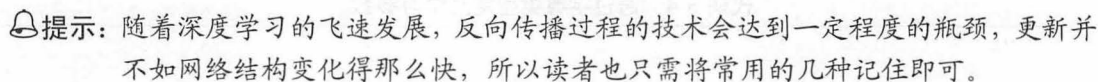 提示：随着深度学习的飞速发展，反向传播过程的技术会达到一定程度的瓶颈，更新并
不如网络结构变化得那么快，所以读者也只需将常用的几种记住即可。